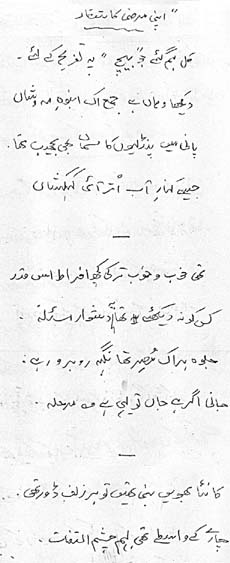 "اپنی مرضی کا ہتفار"
کل ہم گئے جو "بیچ" پہ تفریح کے لئے۔
دیکھا وہاں ہے جمع اک انبوہِ مہ وشاں
پانی میں پنڈلیوں کا سماں بھی عجیب تھا۔
جیسے کنارِ آب اُتر آئی کہکشاں
—
تھی خوب و خوب تر کی کچھ افراط اس قدر
کس کو نہ دیکھئے یہ تھا دشوار مسئلہ۔
جلوہ ہر اک مُصِر تھا نگہ روبرو رہے۔
جانی اگر ہے جاں تو یہی ہے وہ مرحلہ۔
—
کانٹا بھویں بنی تھیں تو ہر زلف ڈور تھی۔
چارے کے واسطے تھی بہم چشمِ التفات۔